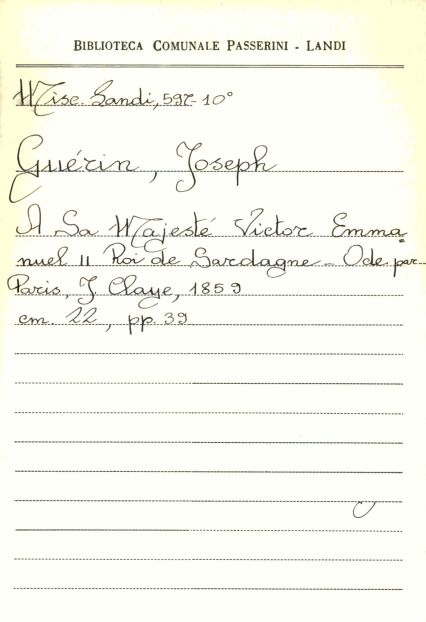 BIBLIOTECA COMUNALE PASSERINI - LANDI
Misc. Landi, 597-10°
Guérin, Joseph
A Sa Majesté Victor Emma=
nuel II Roi de Sardagne - Ode par
Paris, J. Claye, 1859
cm. 22, pp. 39